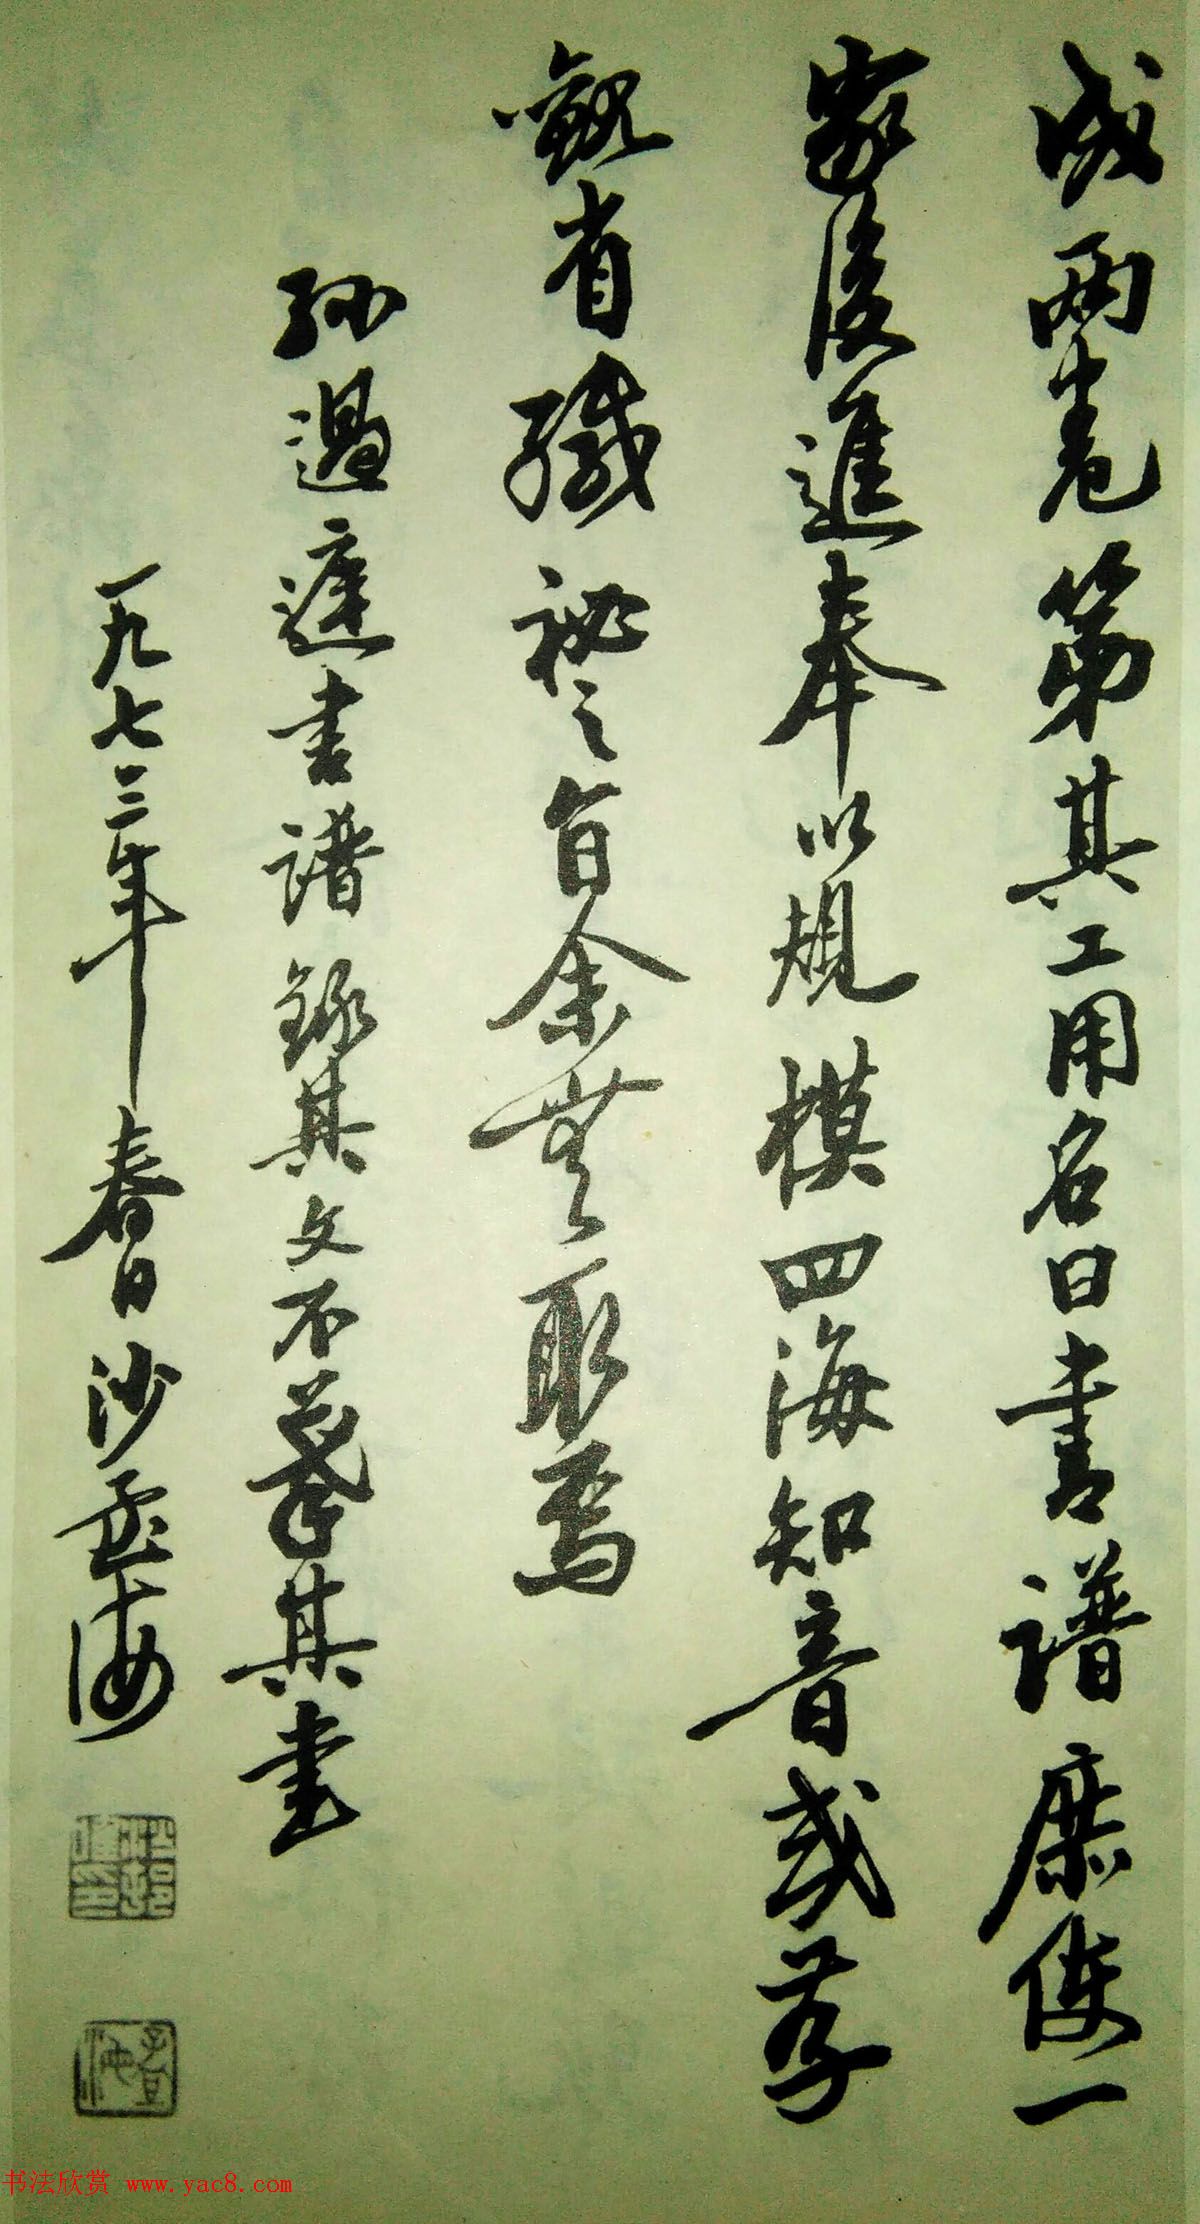 成兩卷第其工用名曰書譜庶使一
家後進奉以規模四海知音或存
觀省緘秘之旨余無取焉
孫過庭書譜錄其文不摹其書
一九七三年春日沙孟海
孟海
书法欣赏 www.yac8.com